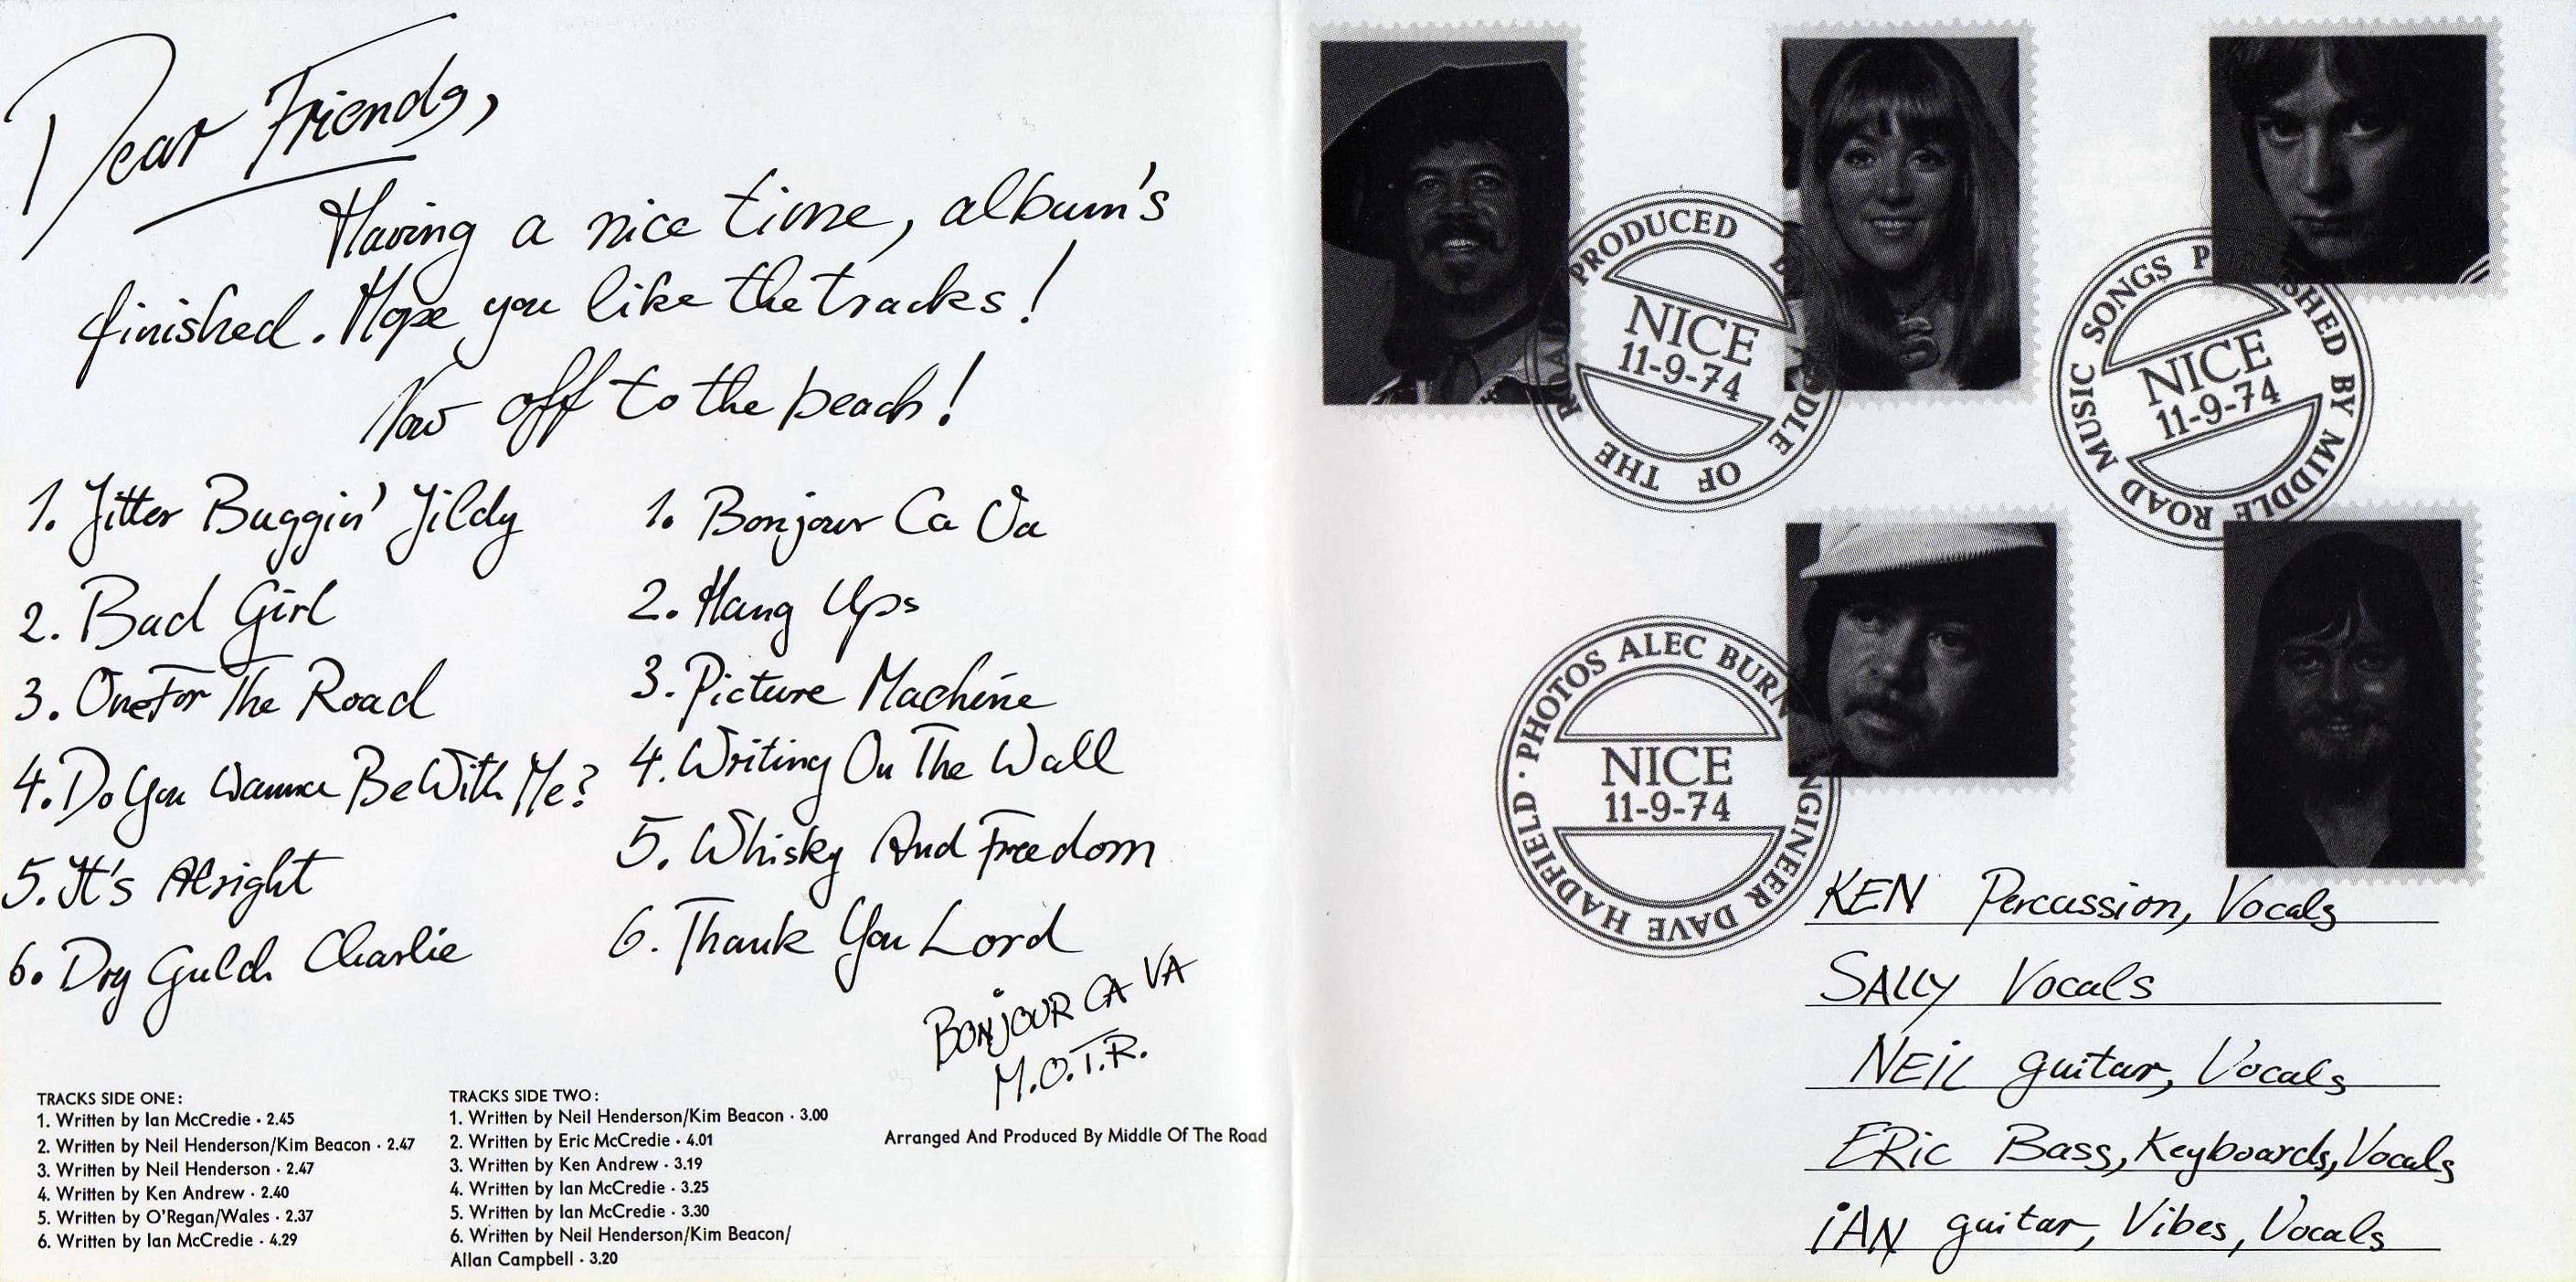 Dear Friends,
Having a nice time, album's
finished. Hope you like the tracks!
Now off to the beach!
1. Jitter Buggin' Jildy
2. Bad Girl
3. One For The Road
4. Do You Wanna Be With Me?
5. It's Alright
6. Dry Gulch Charlie
1. Bonjour Ca Va
2. Hang Ups
3. Picture Machine
4. Writing On The Wall
5. Whisky And Freedom
6. Thank You Lord
BONJOUR CA VA
M.O.T.R.
TRACKS SIDE ONE:
1. Written by Ian McCredie · 2.45
2. Written by Neil Henderson/Kim Beacon · 2.47
3. Written by Neil Henderson · 2.47
4. Written by Ken Andrew · 2.40
5. Written by O'Regan/Wales · 2.37
6. Written by Ian McCredie · 4.29
TRACKS SIDE TWO:
1. Written by Neil Henderson/Kim Beacon · 3.00
2. Written by Eric McCredie · 4.01
3. Written by Ken Andrew · 3.19
4. Written by Ian McCredie · 3.25
5. Written by Ian McCredie · 3.30
6. Written by Neil Henderson/Kim Beacon/
Allan Campbell · 3.20
Arranged And Produced By Middle Of The Road
PRODUCED OF THE ROAD
NICE
11-9-74
SONGS BY MIDDLE ROAD MUSIC
NICE
11-9-74
PHOTOS ALEC DAVE HADFIELD ·
NICE
11-9-74
KEN Percussion, Vocals
SALLY Vocals
NEIL guitar, Vocals
ERIC Bass, Keyboards, Vocals
IAN guitar, Vibes, Vocals